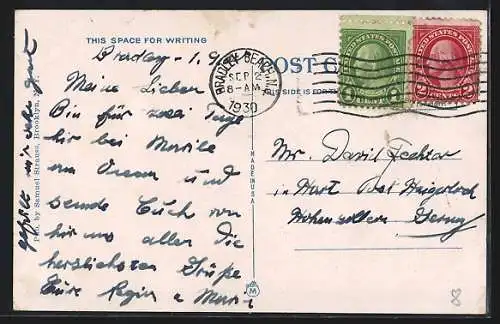 THIS SPACE FOR WRITING
Bradley - 1.9
Meine Lieben
Bin für zwei Tage
hir bei Marile
am Ocean und
sende Euch von
hir aus allen die
herzlichsten Grüße
Eure Regin e Mari
gefällt mir sehr gut
Pub. by Samuel Strauss, Brooklyn, N.Y.
MADE IN U.S.A.
POST C
THIS SIDE IS FOR TH
BRADLEY BEACH, N.J.
SEP 2
8-AM
1930
UNITED STATES POSTAGE
1 CENT 1
UNITED STATES POSTAGE
2 CENTS 2
Mr. David Fechter
in Hart Post Haigerloch
Hohenzollern Germy
M
8